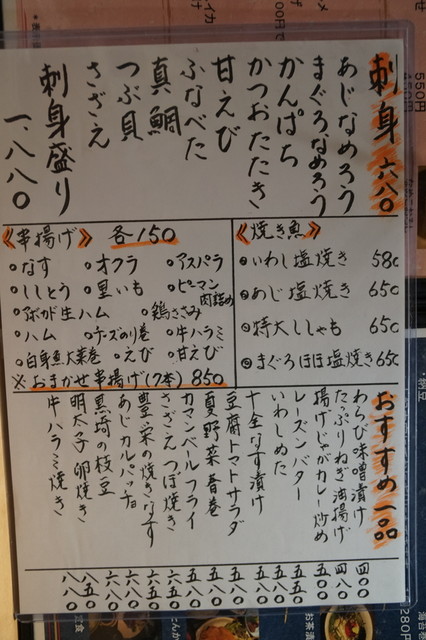 刺身 六八〇
あじなめろう
まぐろなめろう
かんぱち
かつおたたき
甘えび
ふなべた
真鯛
つぶ貝
さざえ
刺身盛り 一、八八〇
《串揚げ》 各150
なす
オクラ
アスパラ
ししとう
里いも
ピーマン肉詰め
アボガド生ハム
鶏ささみ
ハム
チーズのり巻
牛ハラミ
白身魚大葉巻
えび
甘えび
※おまかせ串揚げ(7本) 850
《焼き魚》
いわし塩焼き 580
あじ塩焼き 650
特大ししゃも 650
まぐろほほ塩焼き 650
おすすめ一品
わらび味噌漬け 四〇〇
たっぷりねぎ油揚げ 四八〇
揚げじゃがカレー炒め 五〇〇
レーズンバター 五五〇
いわしぬた 五五〇
十全なす漬け 五五〇
豆腐トマトサラダ 五八〇
夏野菜春巻 五八〇
カマンベールフライ 五八〇
さざえつぼ焼き 六五〇
豊栄の焼きなす 六五〇
あじカルパッチョ 六八〇
黒埼の枝豆 六八〇
明太子卵焼き 八五〇
牛ハラミ焼き 八八〇
550円
450円
280円